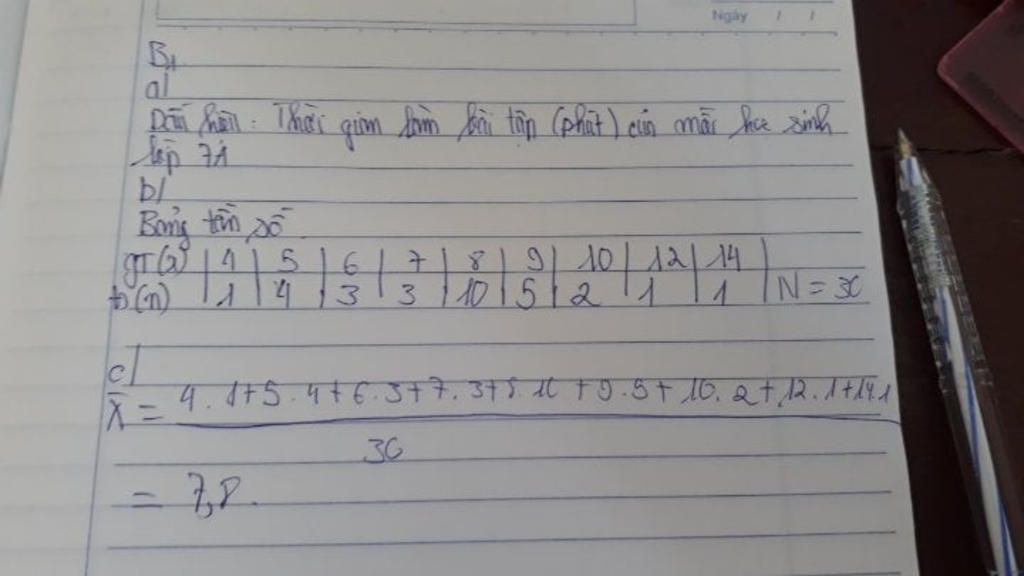 Ngày / /
B1
a/
Dấu hiệu: Thời gian làm bài tập (phút) của mỗi học sinh
lớp 7A
b/
Bảng tần số
GT(x) | 4 | 5 | 6 | 7 | 8 | 9 | 10 | 12 | 14
ts(n) | 1 | 4 | 3 | 3 | 10 | 5 | 2 | 1 | 1 | N = 30
c/
X̄ = 4.1+5.4+6.3+7.3+8.10+9.5+10.2+12.1+14.1
30
= 7,8.